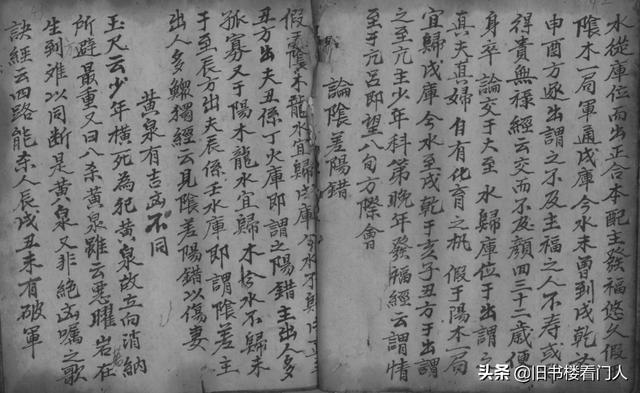 水從庫位而出正合本配主發福悠久假
陰木一局軍通戌庫今水未曾到戌乾
申酉方遂出謂之不及主福之人不寿或
得貴無禄經云交而不及顔四三十二歲便
身卒論交于大至水歸庫位于出謂之
真夫真婦自有化育之机假于陽木一局
宜歸戌庫今水至戌乾于亥子丑方于出謂
之至亢主少年科第晚年發福經云謂情
至于亢吕即望八旬方際會
論陰差陽錯
假云陰木龍水宜歸戌庫今水不歸戌
丑方出夫丑係丁火庫即謂之陽錯主出人多
孤寡又于陽木龍水宜歸木於水不歸未
于至辰方出夫辰係壬水庫即謂陰差主
出人多鰥獨經云見陰差陽錯以傷妻
黄泉有吉凶不同
玉尺云少年横死為犯黄泉故立向消納
所避最重又曰八杀黄泉雖云惡曜岩在
生到难以同断是黄泉又非絶凶嘱之歌
訣經云四路能杀人辰戌丑未有破軍
头条@旧书楼看门人